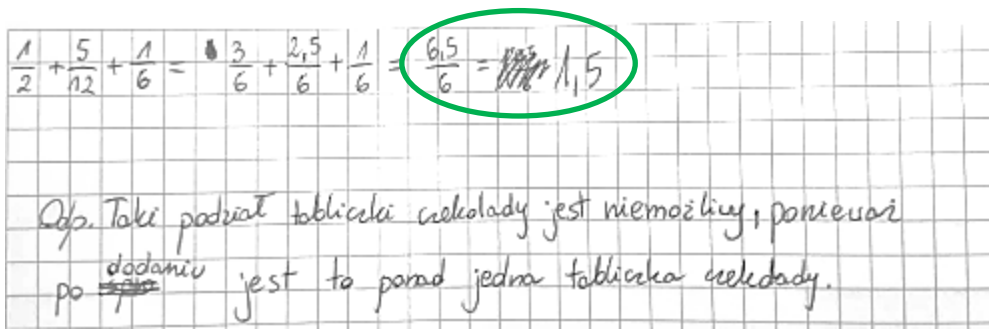 1/2 + 5/12 + 1/6 = 3/6 + 2,5/6 + 1/6 = 6,5/6 = 1,5
Odp. Taki podział tabliczki czekolady jest niemożliwy, ponieważ
po dodaniu jest to ponad jedna tabliczka czekolady.